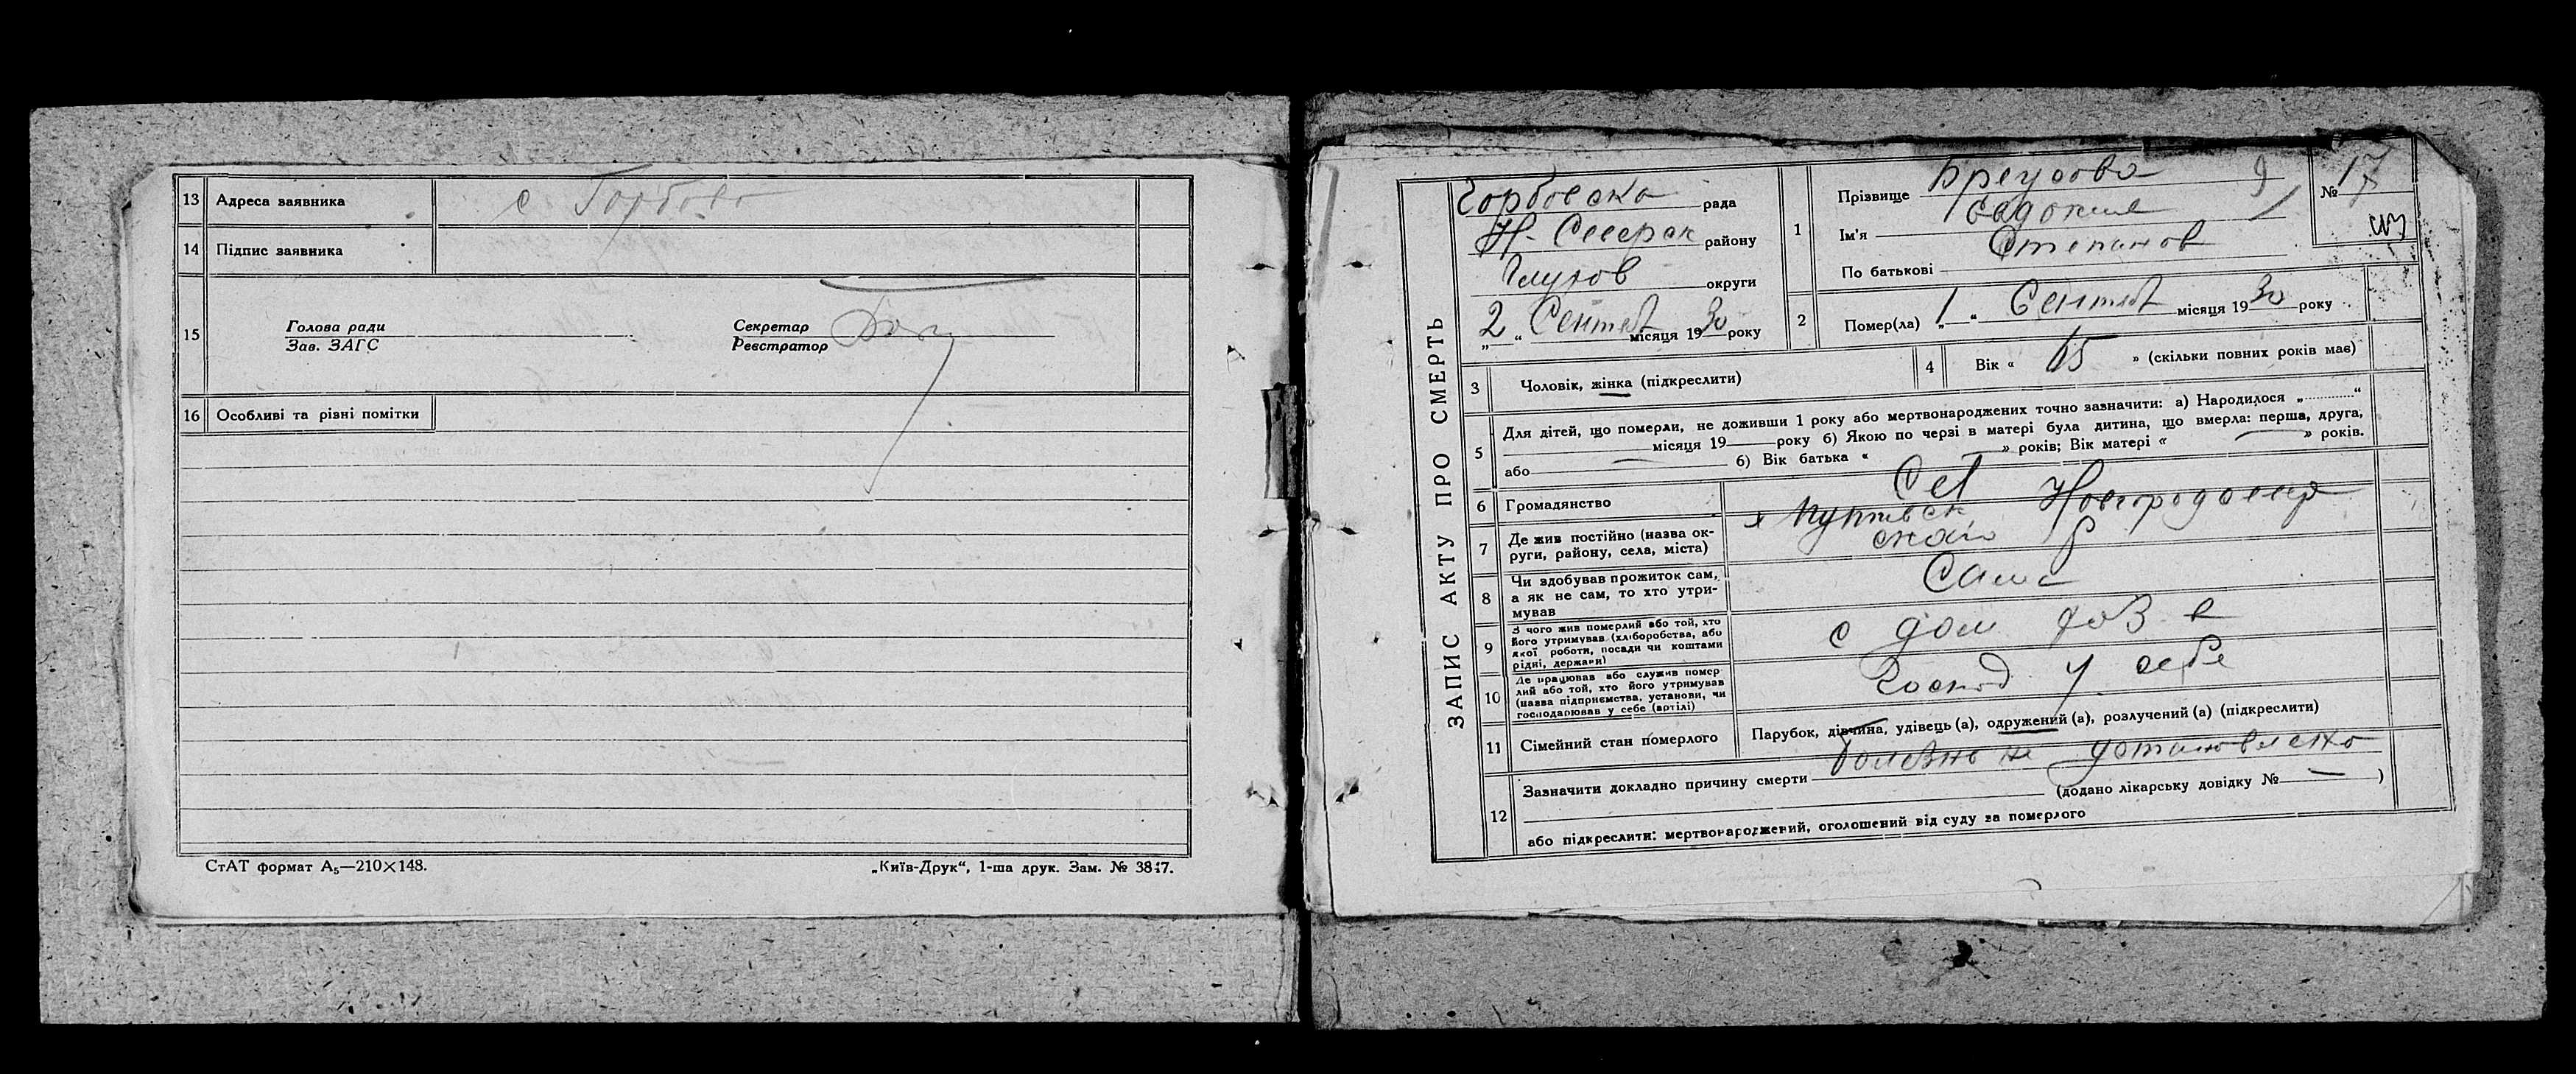 13 Адреса заявника с Горбово
14 Підпис заявника
15 Голова ради
Зав. ЗАГС
Секретар
Реєстратор
16 Особливі та різні помітки
СтАТ формат А₅—210×148.
„Київ-Друк“, 1-ша друк. Зам. № 3847.
ЗАПИС АКТУ ПРО СМЕРТЬ
Горбовска рада
Н- Сиверск району
Глухов округи
„2“ Сентяб місяця 1930 року
1 Прізвище
Ім'я Евдокия
По батькові Степанов
№ 17
2 Помер(ла) „1“ Сентяб місяця 1930 року
3 Чоловік, жінка (підкреслити)
4 Вік « 65 » (скільки повних років має)
5 Для дітей, що померли, не доживши 1 року або мертвонароджених точно зазначити: а) Народилося „..........“
місяця 19 року б) Якою по черзі в матері була дитина, що вмерла: перша, друга,
або — б) Вік батька « » років; Вік матері « — » років.
6 Громадянство
7 Де жив постійно (назва ок-
руги, району, села, міста)
8 Чи здобував прожиток сам,
а як не сам, то хто утри-
мував
Сама
9 З чого жив померлий або той, хто
його утримував (хліборобства, або
якої роботи, посади чи коштами
рідні, держави)
с дом
10 Де працював або служив помер
лий або той, хто його утримував
(назва підприємства, установи, чи
господарював у себе (артілі)
Господ у себе
11 Сімейний стан померлого Парубок, дівчина, удівець (а), одружений (а), розлучений (а) (підкреслити)
12 Зазначити докладно причину смерти болезнь не установлено
(додано лікарську довідку № — )
або підкреслити: мертвонароджений, оголошений від суду за померлого